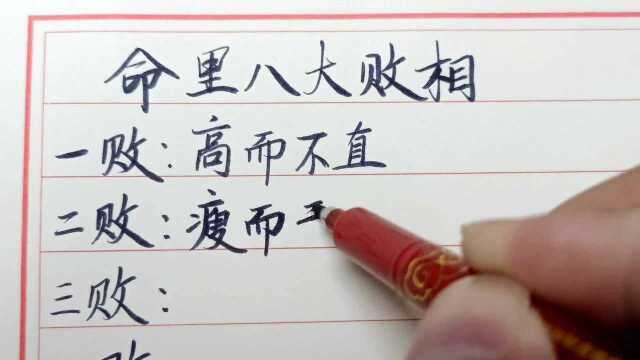 命里八大败相
一败：高而不直
二败：瘦而
三败：